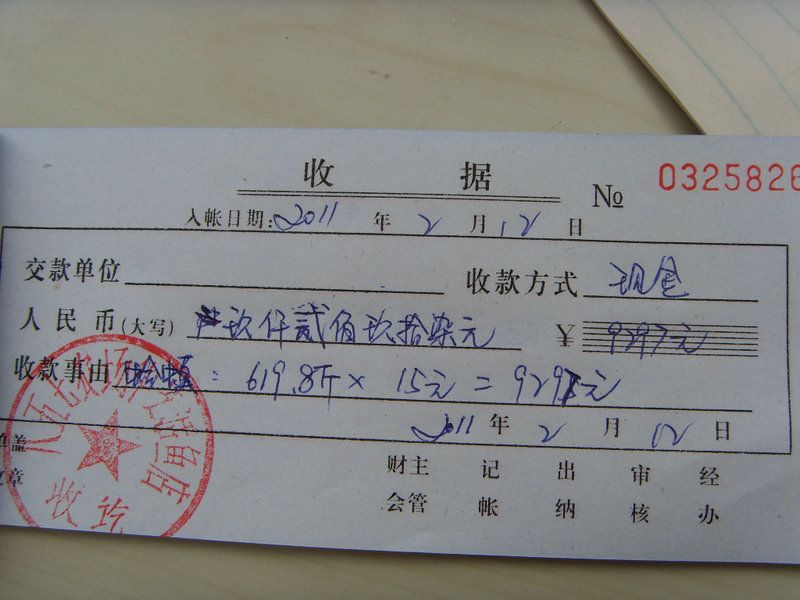 收 据
№ 0325826
入帐日期: 2011 年 2 月 12 日
交款单位 收款方式 现金
人民币(大写) 玖仟贰佰玖拾柒元 ¥ 9297元
收款事由 : 619.8斤 × 15元 = 9297元
2011 年 2 月 12 日
单盖 财主 记 出 审 经
章 会管 帐 纳 核 办
八五七农场 活鱼店
收讫